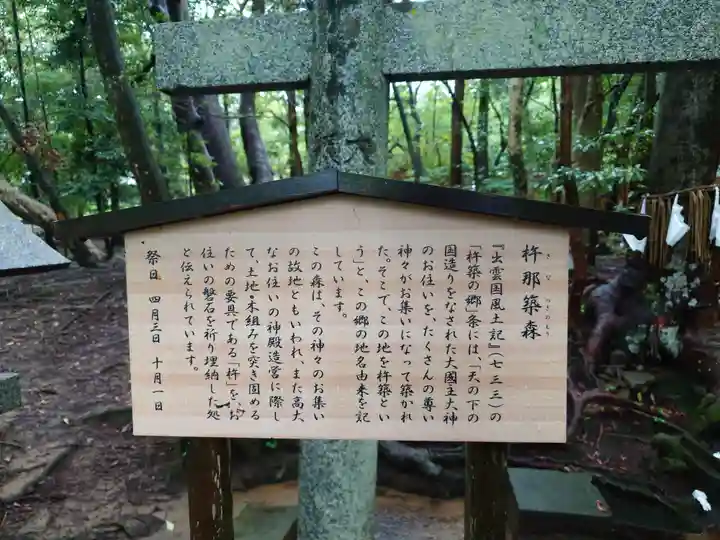 杵那築森
きなつきのもり
『出雲国風土記』(七三三)の
「杵築の郷」条には、「天の下の
国造りをなされた大國主大神
のお住いを、たくさんの尊い
神々がお集いになって築かれ
た。そこで、この地を杵築とい
う」と、この郷の地名由来を記
しています。
この森は、その神々のお集い
の故地ともいわれ、また高大
なお住いの神殿造営に際し
て、土地・木組みを突き固める
ための要具である「杵」を、お
住いの磐石を祈り埋納した処
と伝えられています。
祭日 四月三日 十月一日